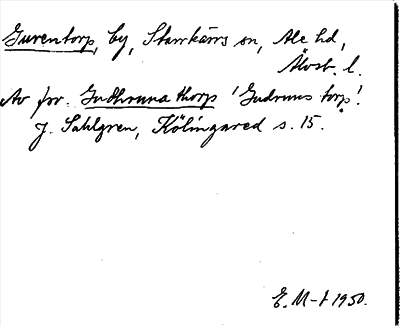 Gurentorp, by, Starrkärrs sn, Ale hd,
Älvsb. l.
Av for. Gudhruna thorp 'Gudruns torp'.
J. Sahlgren, Kölingared s. 15.
E. M-t 1950.